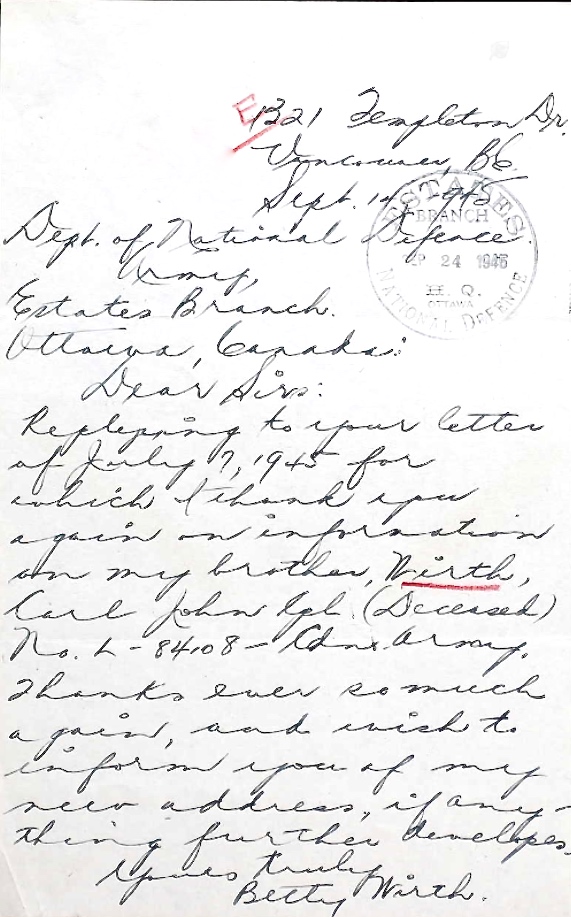 E 1321 Templeton Dr.
Vancouver, B.C.
Sept. 14, 1945
ESTATES
BRANCH
SEP 24 1945
H. Q.
OTTAWA
NATIONAL DEFENCE
Dept. of National Defence.
Army,
Estates Branch.
Ottawa, Canada:
Dear Sirs:
Replying to your letter
of July 7, 1945 for
which I thank you
again on information
on my brother, Wirth,
Carl John Cpl. (Deceased)
No. L-84108 - Cdn. Army.
Thanks ever so much
again, and wish to
inform you of my
new address, if any-
thing further developes.
Yours truly
Betty Wirth.